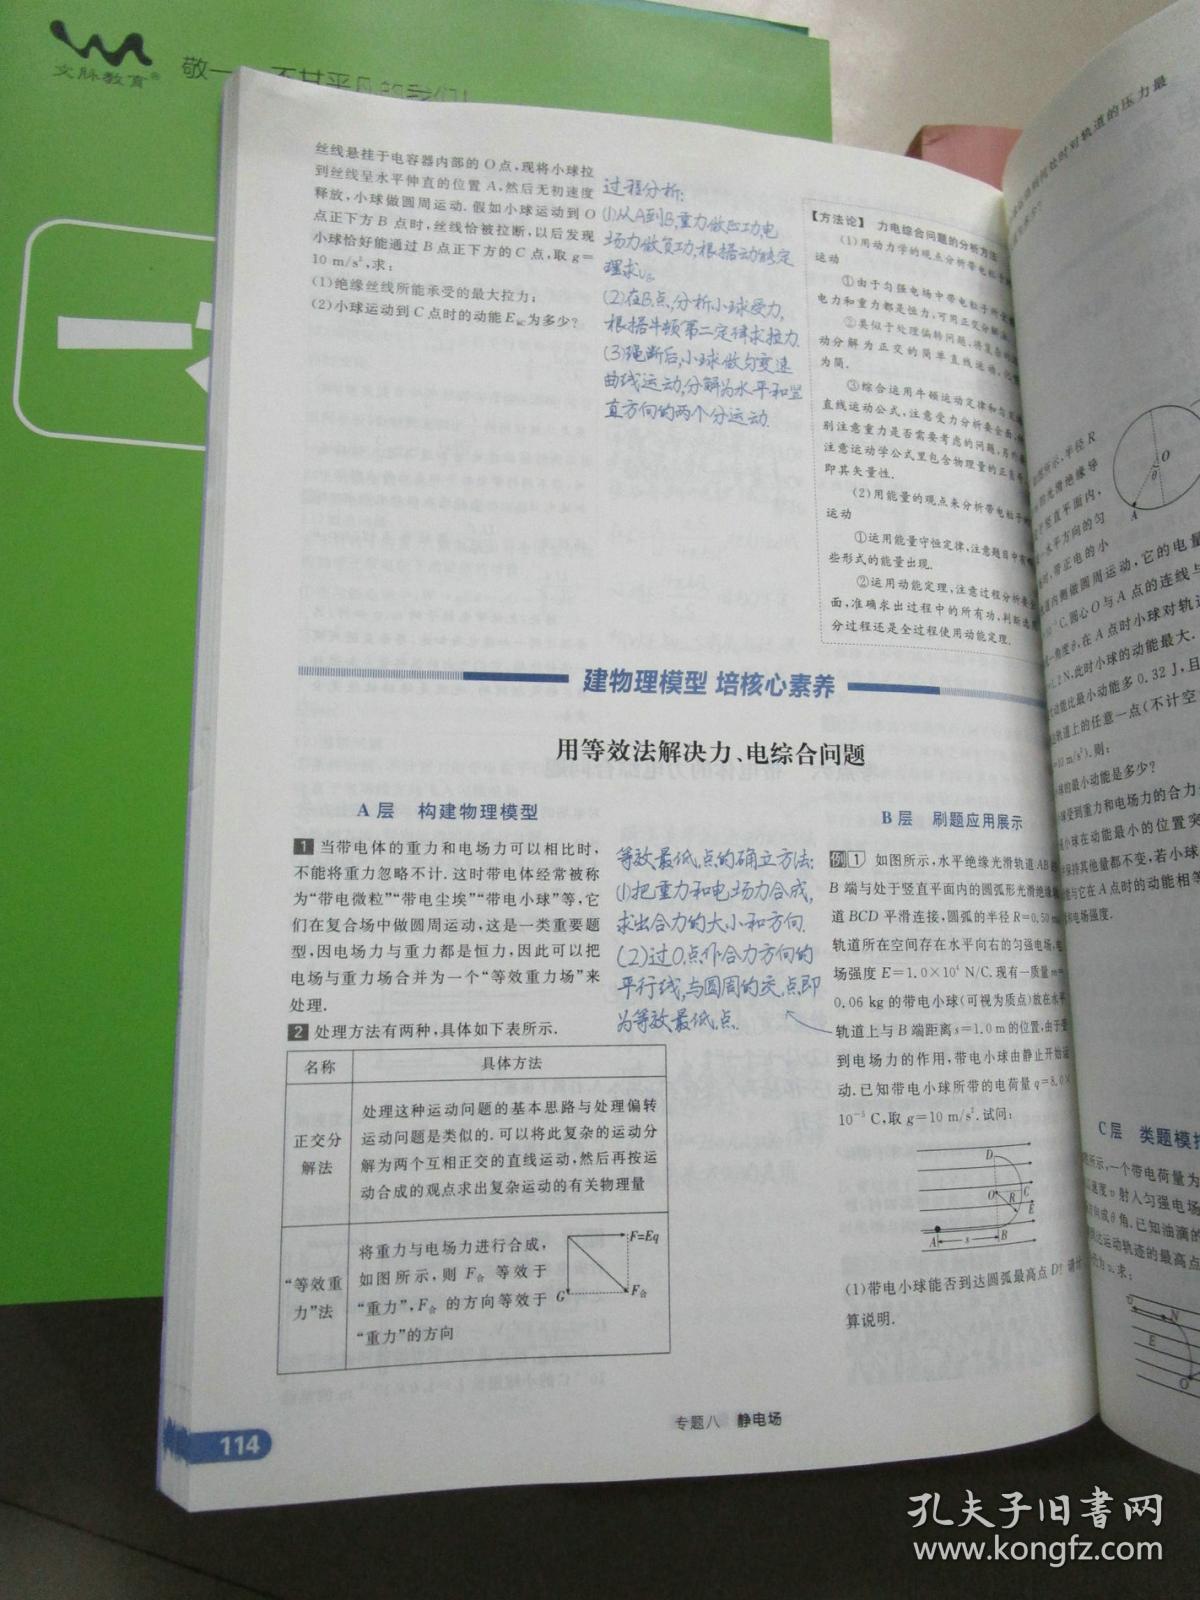 文脉教育®
丝线悬挂于电容器内部的O点,现将小球拉
到丝线呈水平伸直的位置A,然后无初速度
释放,小球做圆周运动.假如小球运动到O
点正下方B点时,丝线恰被拉断,以后发现
小球恰好能通过B点正下方的C点,取g=
10 m/s²,求:
(1)绝缘丝线所能承受的最大拉力;
(2)小球运动到C点时的动能 为多少?
过程分析:
(1)从A到B,重力做正功,电
场力做负功,根据动能定
理求
(2)在B点,分析小球受力,
根据牛顿第二定律求拉力.
(3)绳断后,小球做匀变速
曲线运动,分解为水平和竖
直方向的两个分运动.
【方法论】 力电综合问题的分析方法
(1)用动力学的观点分析带电粒子
运动
①由于匀强电场中带电粒子所
电力和重力都是恒力,可用正交分解
②类似于处理偏转问题,将复杂的
动分解为正交的简单直线运动,化
为简.
③综合运用牛顿运动定律和匀
直线运动公式,注意受力分析要全面,
别注意重力是否需要考虑的问题,另外
注意运动学公式里包含物理量的正负
即其矢量性.
(2)用能量的观点来分析带电粒子
运动
①运用能量守恒定律,注意题目中有
些形式的能量出现.
②运用动能定理,注意过程分析要全
面,准确求出过程中的所有功,判断选
分过程还是全过程使用动能定理.
建物理模型 培核心素养
用等效法解决力、电综合问题
A层 构建物理模型
1 当带电体的重力和电场力可以相比时,
不能将重力忽略不计.这时带电体经常被称
为“带电微粒”“带电尘埃”“带电小球”等,它
们在复合场中做圆周运动,这是一类重要题
型,因电场力与重力都是恒力,因此可以把
电场与重力场合并为一个“等效重力场”来
处理.
2 处理方法有两种,具体如下表所示.
名称 具体方法
正交分
解法
处理这种运动问题的基本思路与处理偏转
运动问题是类似的.可以将此复杂的运动分
解为两个互相正交的直线运动,然后再按运
动合成的观点求出复杂运动的有关物理量
“等效重
力”法
将重力与电场力进行合成,
如图所示,则F合等效于
“重力”,F合的方向等效于
“重力”的方向
F=Eq
G
F合
等效最低点的确立方法:
(1)把重力和电场力合成,
求出合力的大小和方向.
(2)过O点作合力方向的
平行线,与圆周的交点即
为等效最低点.
B层 刷题应用展示
例1 如图所示,水平绝缘光滑轨道AB的
B端与处于竖直平面内的圆弧形光滑绝缘轨
道BCD平滑连接,圆弧的半径R=0.50 m.
轨道所在空间存在水平向右的匀强电场,电
场强度E=1.0×10⁴ N/C.现有一质量m=
0.06 kg的带电小球(可视为质点)放在水平
轨道上与B端距离s=1.0 m的位置,由于受
到电场力的作用,带电小球由静止开始运
动.已知带电小球所带的电荷量q=8.0×
10⁻⁵ C,取g=10 m/s².试问:
D
O
R
C
E
A
s
B
(1)带电小球能否到达圆弧最高点D?请计
算说明.
114
专题八 静电场
处时对轨道的压力最
O
θ
A
图所示,半径R
的光滑绝缘导
竖直平面内,
水平方向的匀
时,带正电的小
道内侧做圆周运动,它的电量
C.圆心O与A点的连线与
一角度θ,在A点时小球对轨道
2 N,此时小球的动能最大.
动能比最小动能多0.32 J,且
轨道上的任意一点(不计空
=10 m/s²).则:
球的最小动能是多少?
球受到重力和电场力的合力
小球在动能最小的位置突
保持其他量都不变,若小球
能与它在A点时的动能相等
电场强度.
C层 类题模拟
图所示,一个带电荷量为
速度v射入匀强电场
方向成θ角.已知油滴的
达运动轨迹的最高点
求:
v
N
E
O
孔夫子旧书网
www.kongfz.com